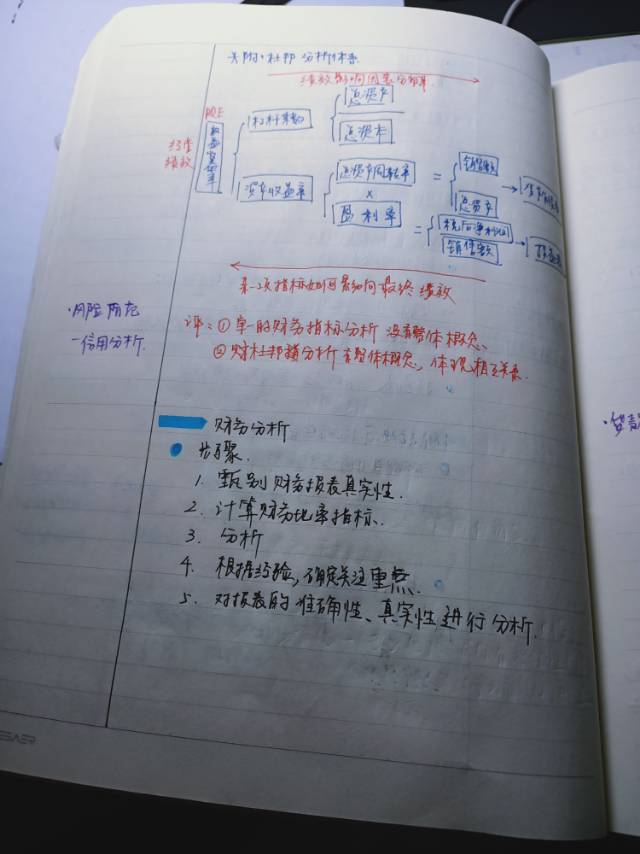 附·杜邦分析体系
绩效影响因素分解
ROE
经营
绩效
权益收益率
杠杆乘数
总资产
总资本
资产收益率
总资产周转率
×
盈利率
=
销售额
总资产
=
税后净利润
销售额
某一项指标如何影响最终绩效
·风险防范
-信用分析.
评：① 单一的财务指标分析 没有整体概念、
② 财杜邦谱分析 有整体概念，体现相互关系.
财务分析
步骤.
1. 甄别财务报表真实性.
2. 计算财务比率指标.
3. 分析
4. 根据经验，确定关注重点.
5. 对报表的准确性、真实性进行分析.